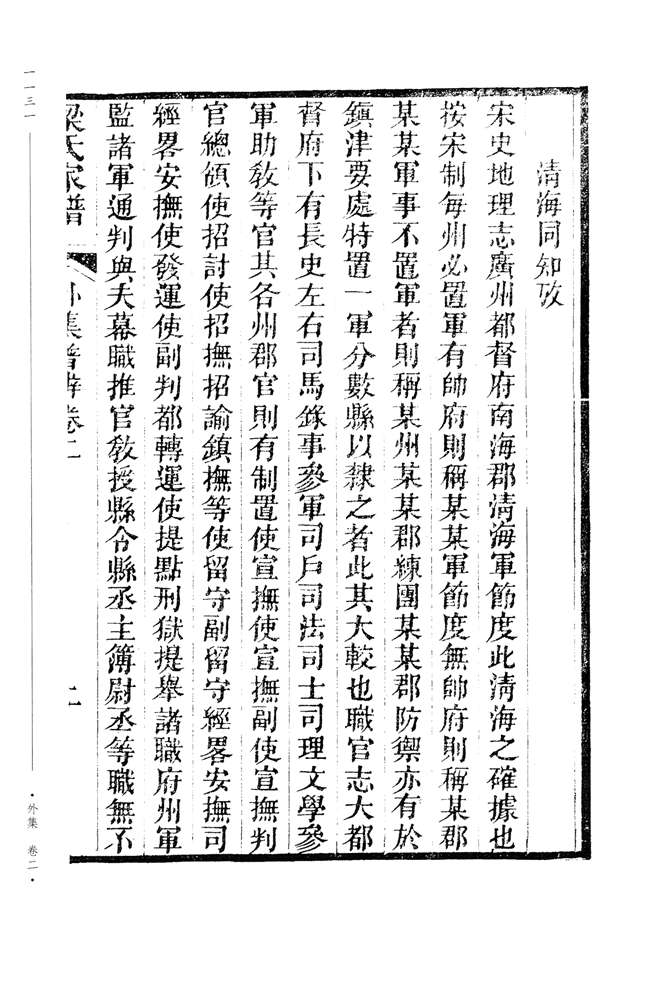 清海同知攷
宋史地理志廣州都督府南海郡清海軍節度此清海之確據也
按宋制每州必置軍有帥府則稱某某軍節度無帥府則稱某郡
某某軍事不置軍者則稱某州某某郡練團某某郡防禦亦有於
鎮津要處特置一軍分數縣以隸之者此其大較也職官志大都
督府下有長史左右司馬錄事參軍司戶司法司士司理文學參
軍助敎等官其各州郡官則有制置使宣撫使宣撫副使宣撫判
官總領使招討使招撫招諭鎮撫等使留守副留守經畧安撫司
經畧安撫使發運使副判都轉運使提點刑獄提舉諸職府州軍
監諸軍通判與夫幕職推官敎授縣令縣丞主簿尉丞等職無不
梁氏家譜 外集 卷二 二
一一三一
·外集 卷二·